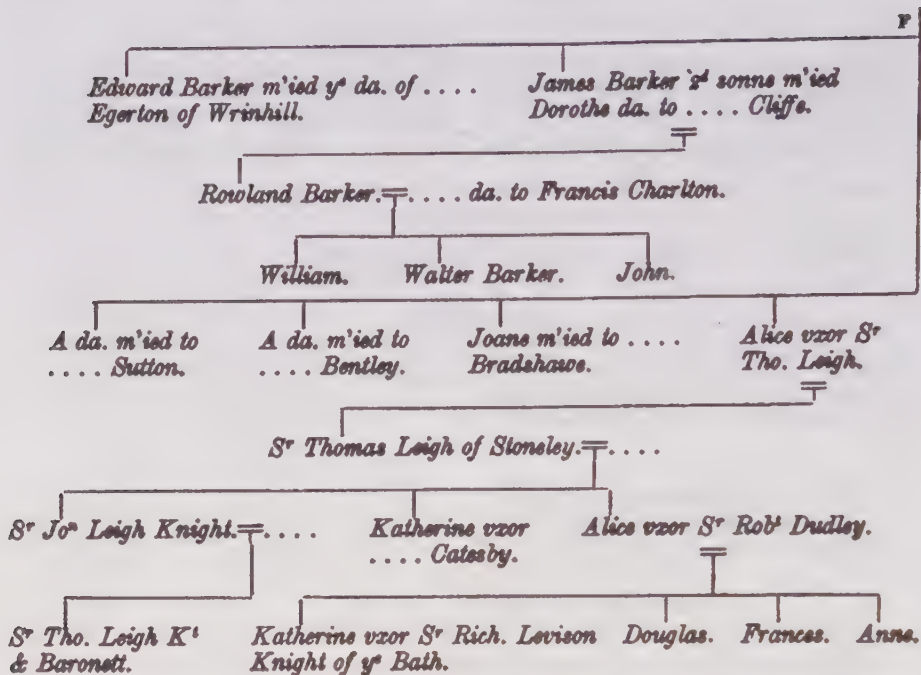 P
Edward Barker m'ied yᵉ da. of . . . .
Egerton of Wrinhill.
James Barker 2ᵈ sonne m'ied
Dorothe da. to . . . . Cliffe.
Rowland Barker.=. . . . da. to Francis Charlton.
William. Walter Barker. John.
A da. m'ied to
. . . . Sutton.
A da. m'ied to
. . . . Bentley.
Joane m'ied to . . . .
Bradshawe.
Alice vxor Sʳ
Tho. Leigh.
Sʳ Thomas Leigh of Stoneley.=. . . .
Sʳ Joⁿ Leigh Knight.=. . . .
Katherine vxor
. . . . Catesby.
Alice vxor Sʳ Robᵗ Dudley.
Sʳ Tho. Leigh Kᵗ
& Baronett.
Katherine vxor Sʳ Rich. Levison
Knight of yᵉ Bath.
Douglas. Frances. Anne.